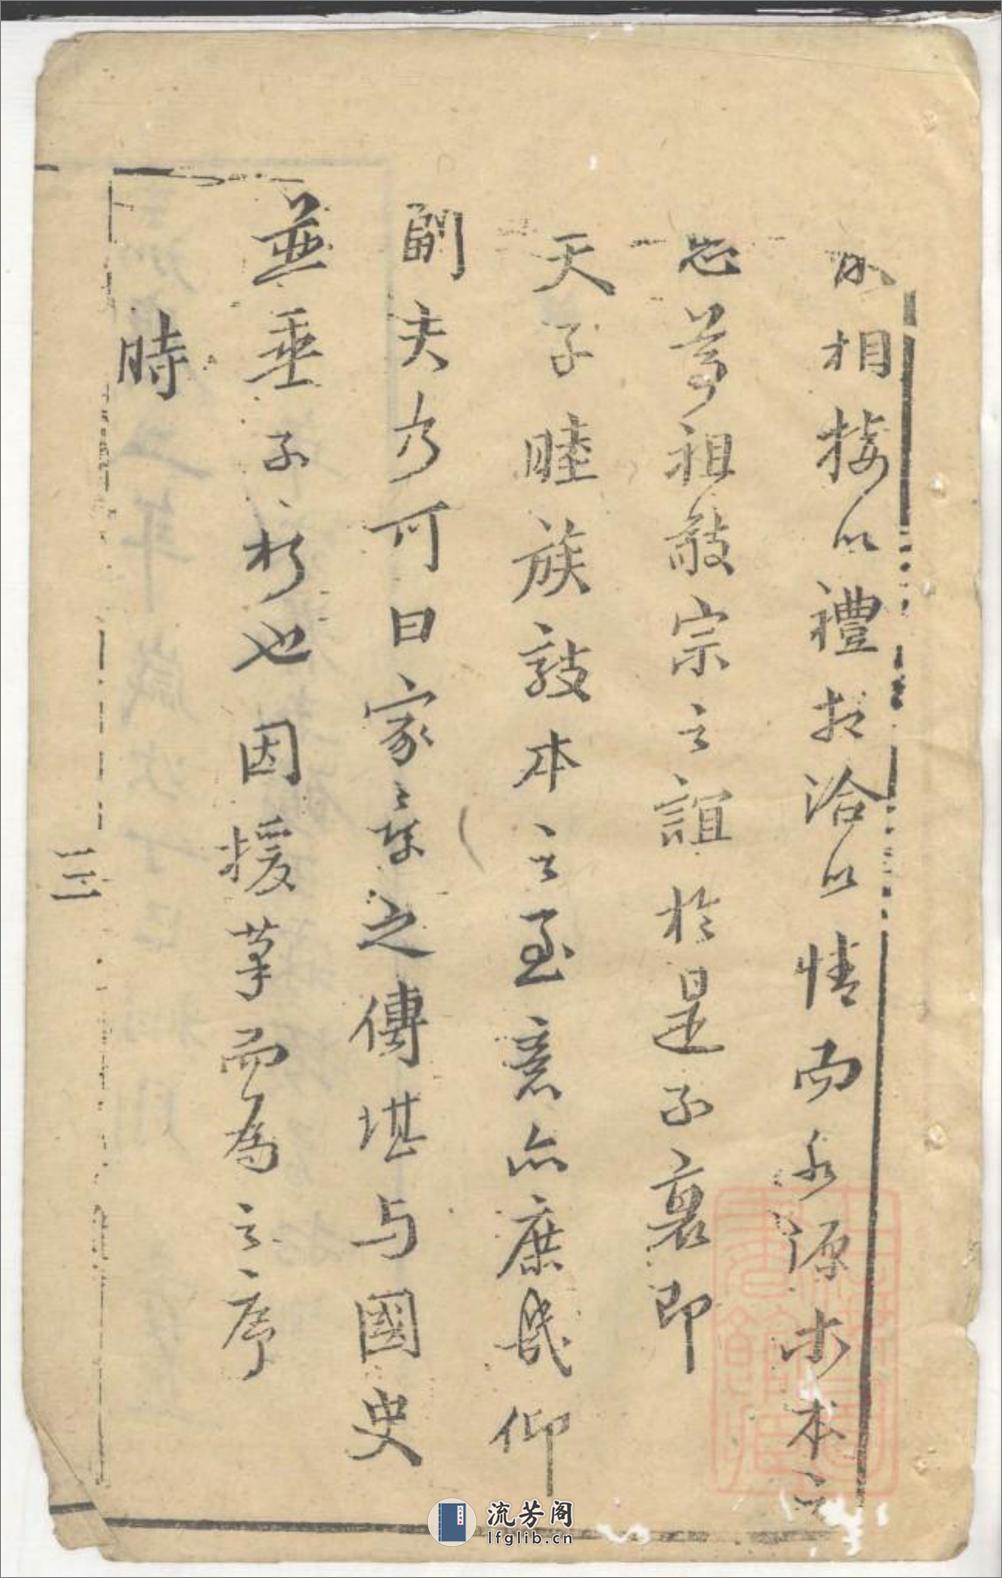 相接以禮相洽以情而水源木本之
思尊祖敬宗之誼於是不衰即
天子睦族敦本之至意亦庶幾仰
副夫乃可曰家乘之傳堪与國史
並垂不朽也因援筆而為之序
時
三
流芳阁
lfglib.cn